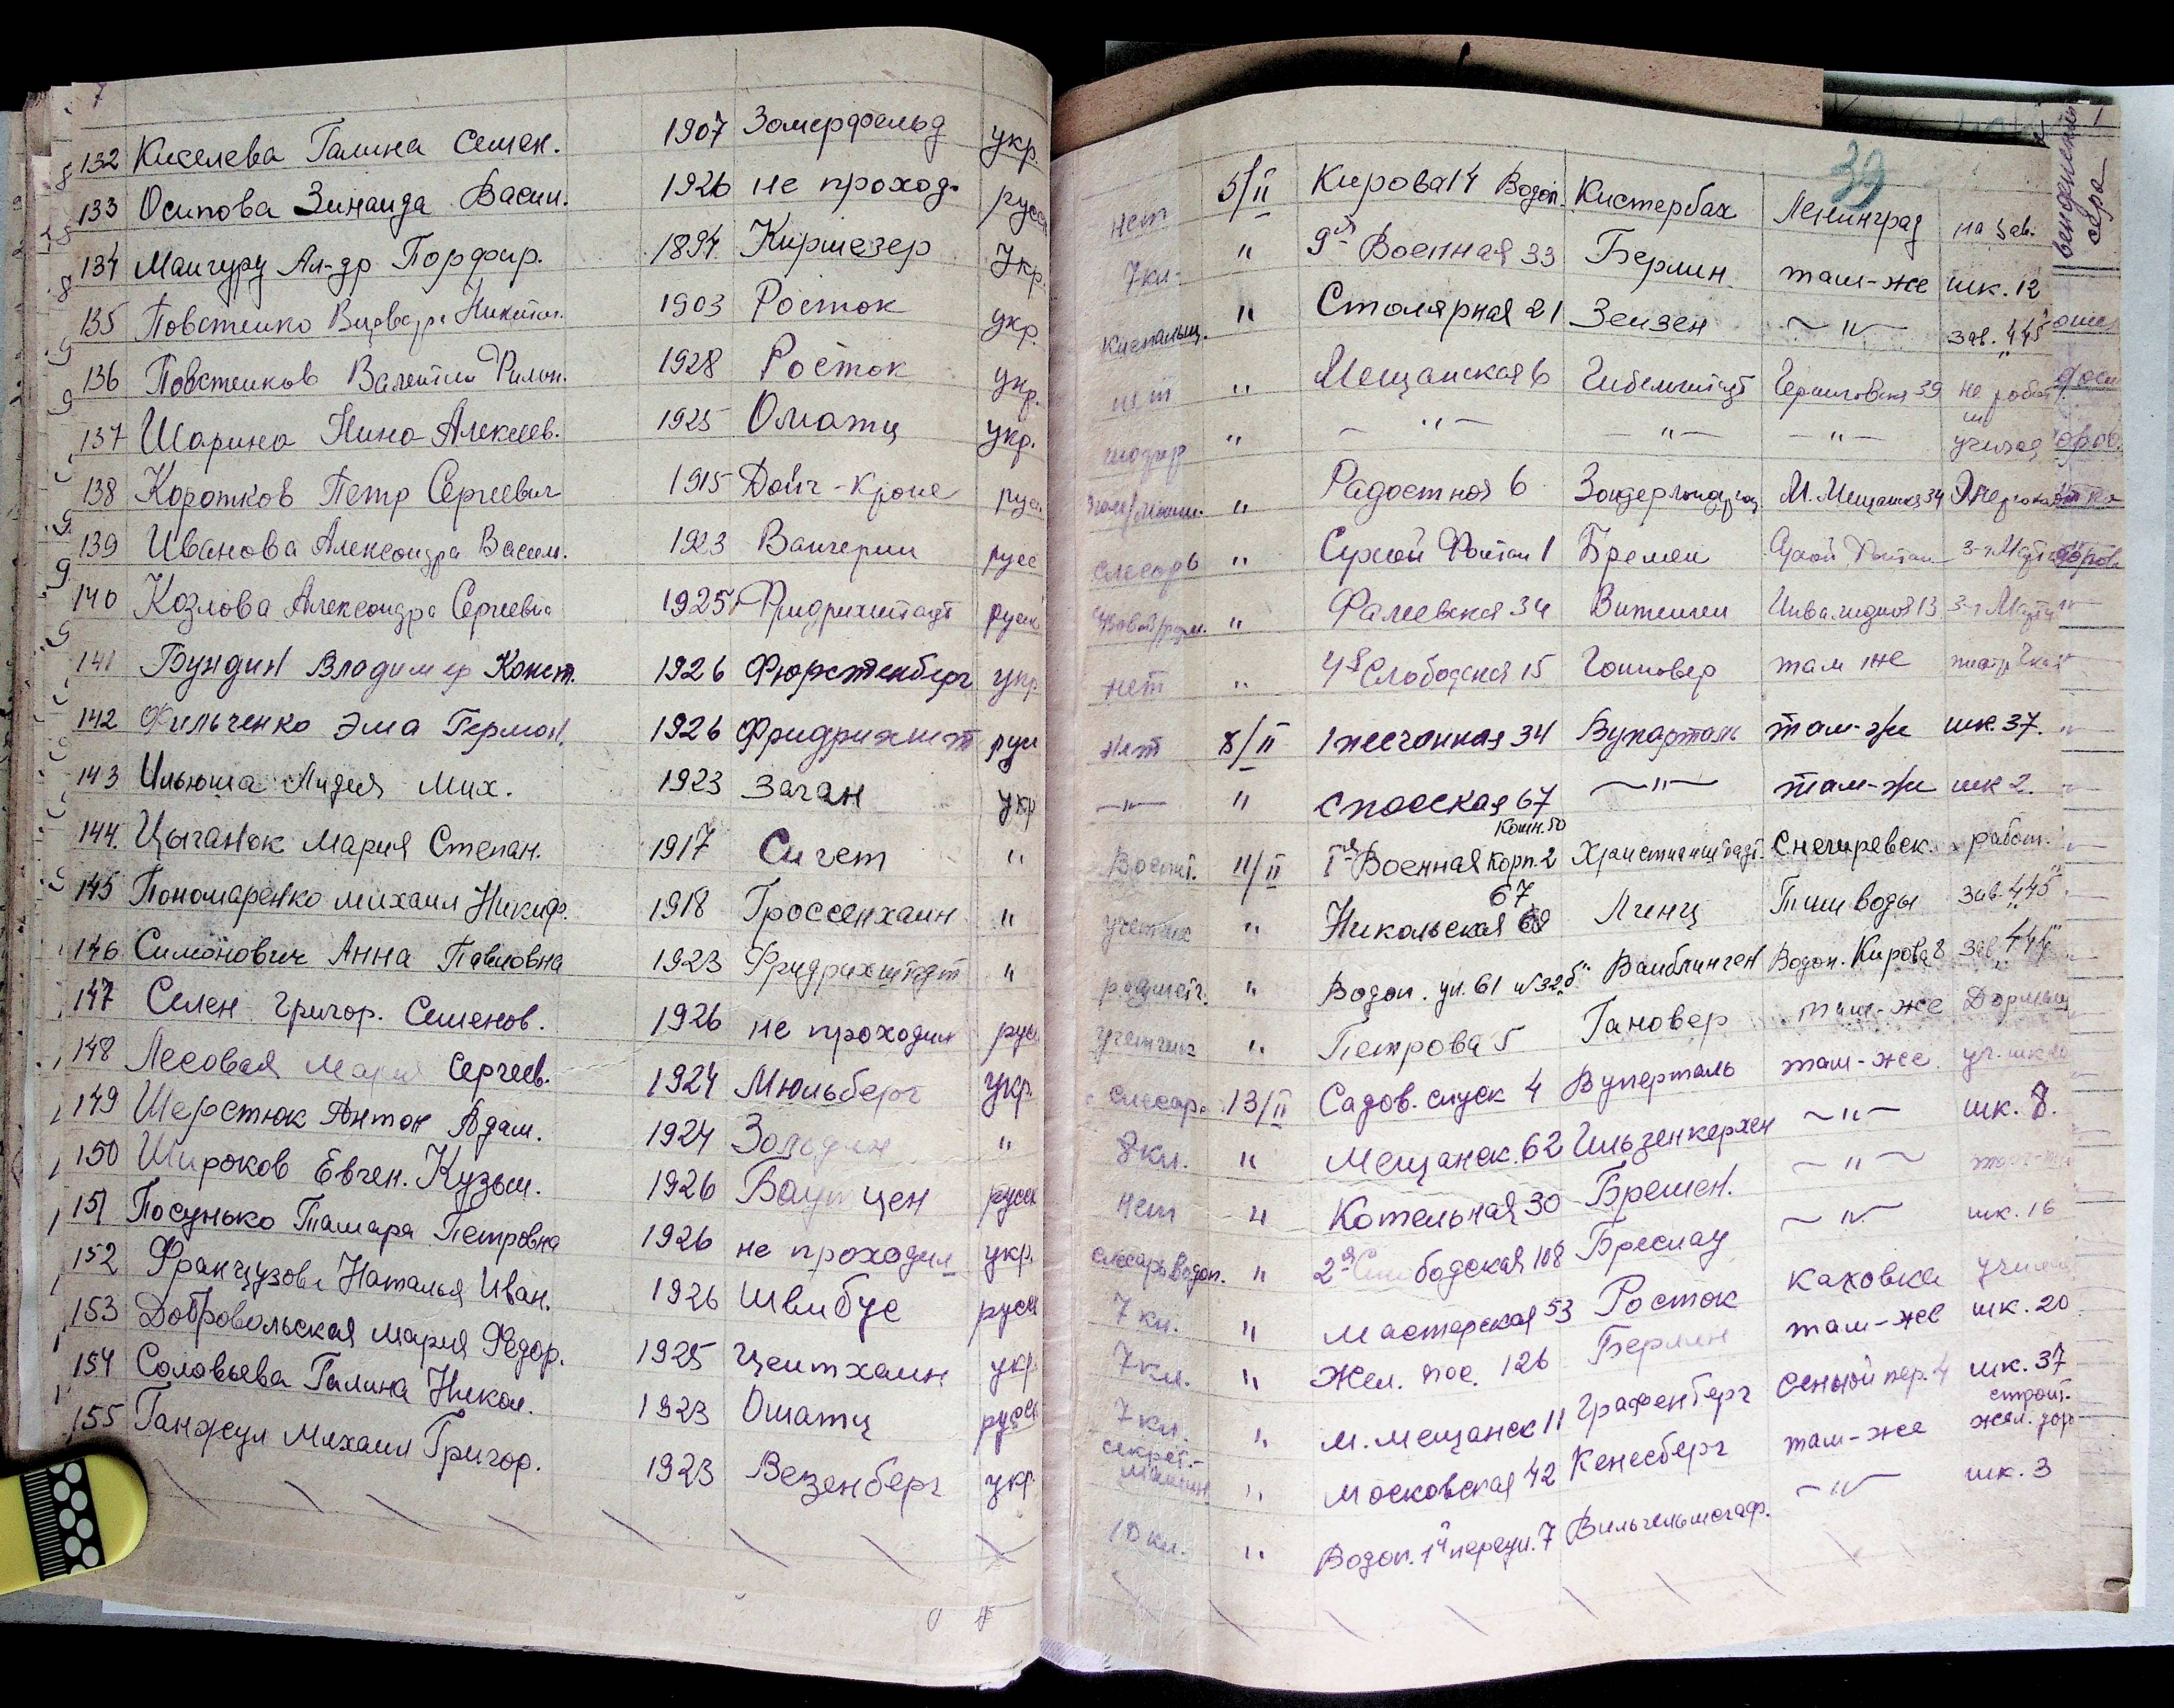 7
132 Киселева Галина Семен. 1907 Зомерфельд укр.
133 Осипова Зинаида Васил. 1926 не проход. русс
134 Мангуру Ал-др Порфир. 1894 Киршезер Укр.
135 Повстенко Никит. 1903 Росток укр.
136 Повстенков Валентин Филон. 1928 Росток укр.
137 Шарина Нина Алексеев. 1925 Ошатц укр.
138 Коротков Петр Сергеевич 1915 Дойч-Кроне рус.
139 Иванова Александра Васил. 1923 Вангерин русс
140 Козлова Александра Сергеевна 1925 Фридрихштадт русск
141 Бундин Владимир Конст. 1926 Фюрстенберг укр
142 Фильченко Эма Герман. 1926 Фридрихшт русс
143 Ильюша Лидия Мих. 1923 Заган укр
144. Цыганок Мария Степан. 1917 Сигет "
145 Пономаренко Михаил Никиф. 1918 Гроссенхаин "
146 Симонович Анна Павловна 1923 Фридрихштадт "
147 Селен Григор. Семенов. 1926 не проходил русс
148 Лесовая Мария Сергеев. 1924 Мюльберг укр.
149 Шерстюк Антон Адам. 1924 Зольдин "
150 Широков Евген. Кузьм. 1926 Баутцен русск
151 Посунько Тамара Петровна 1926 не проходил укр.
152 Французова Наталья Иван. 1926 Швибус русск
153 Добровольская Мария Федор. 1925 Цеитхаин укр
154 Соловьева Галина Никол. 1923 Ошатц русск
155 Ганжул Михаил Григор. 1923 Везенберг укр.
39
нет 5/II Кирова 14 Водоп. Кистербах Ленинград на зав.
7кл. " 9ая Военная 33 Берлин там-же шк. 12
" Столярная 21 Зеизен —"— зав. "445"
нет " Мещанская 6 Гибельштадт 39 не работ.
" —"— —"— —"— училась
" Радостная 6 М. Мещанская 34
слесарь " Сухой Фонтан 1 Бремен Сухой Фонтан З-д Марти
" Фалеевская 34 Витшен Инвалидная 13 З-д Марти
нет " 4я Слободская 15 Ганновер там же
нет 8/II 1 песчанная 34 Вуперталь там-же шк. 37.
—"— " Спасская 67 —"— там-же шк 2.
Воспит. 11/II 1-я Военная корп. 2 комн. 50 Христианштадт Снегиревск. работ.
учетчик " Никольская 67 Лейнц Тишводы Зав "445"
разметч. " Водоп. ул. 61 №32б" Ваиблинген Водоп. Кирова 8 Зав "444"
учетчик " Петрова 5 Гановер там-же Дормаш
слесар. 13/II Садов. спуск 4 Вуперталь там-же уч. школы
8кл. " Мещанск. 62 Гильзенкерхен —"— шк. 8.
нет " Котельная 30 Бремен. —"—
слесарь водоп. " 2ая Слободская 108 Бреслау —"— шк. 16
7 кл. " Мастерская 53 Росток Каховка училась
7 кл. " Жел. пос. 126 Берлин там-же шк. 20
7 кл. " М. Мещанск 11 Графенберг Сенной пер. 4 шк. 37
секрет.-машин. " Московская 42 Кенесберг там-же строит. жел. дор
10 кл. " Водоп. 1й переул. 7 Вильгельмсгаф. —"— шк. 3